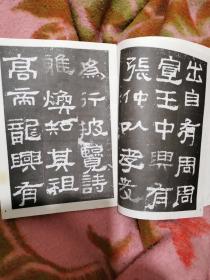 出自有周周
宣王中興有
張仲以孝友
為行披覽詩
雅煥知其祖
高帝龍興有